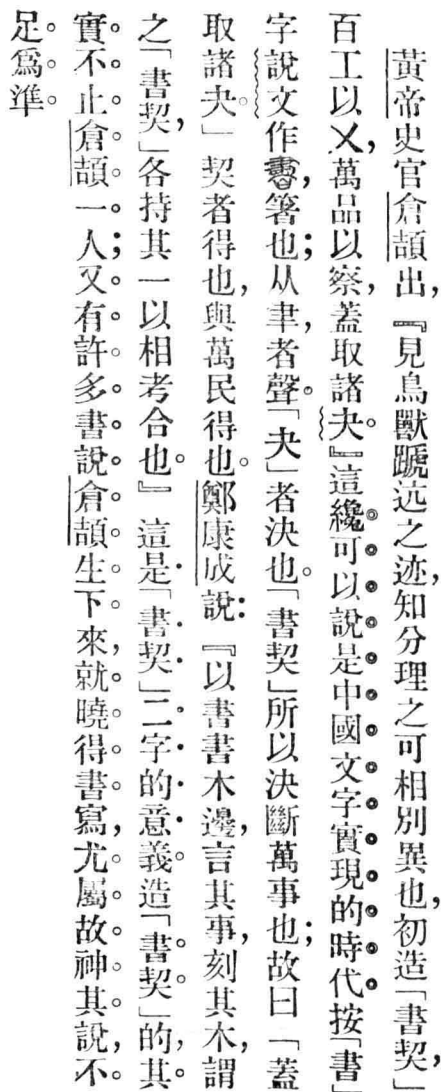 黃帝史官倉頡出，『見鳥獸蹏迒之迹，知分理之可相別異也，初造「書契，」
百工以乂，萬品以察，蓋取諸夬。』這纔可以說是中國文字實現的時代按「書」
字說文作𦘠，箸也；从聿，者聲。「夬」者決也。「書契」所以決斷萬事也；故曰「蓋
取諸夬」契者得也，與萬民得也。鄭康成說：『以書書木邊，言其事，刻其木，謂
之「書契，」各持其一以相考合也。』這是「書契」二字的意義。造「書契」的，其
實不止倉頡一人；又有許多書說倉頡生下來，就曉得書寫，尤屬故神其說，不
足爲準。